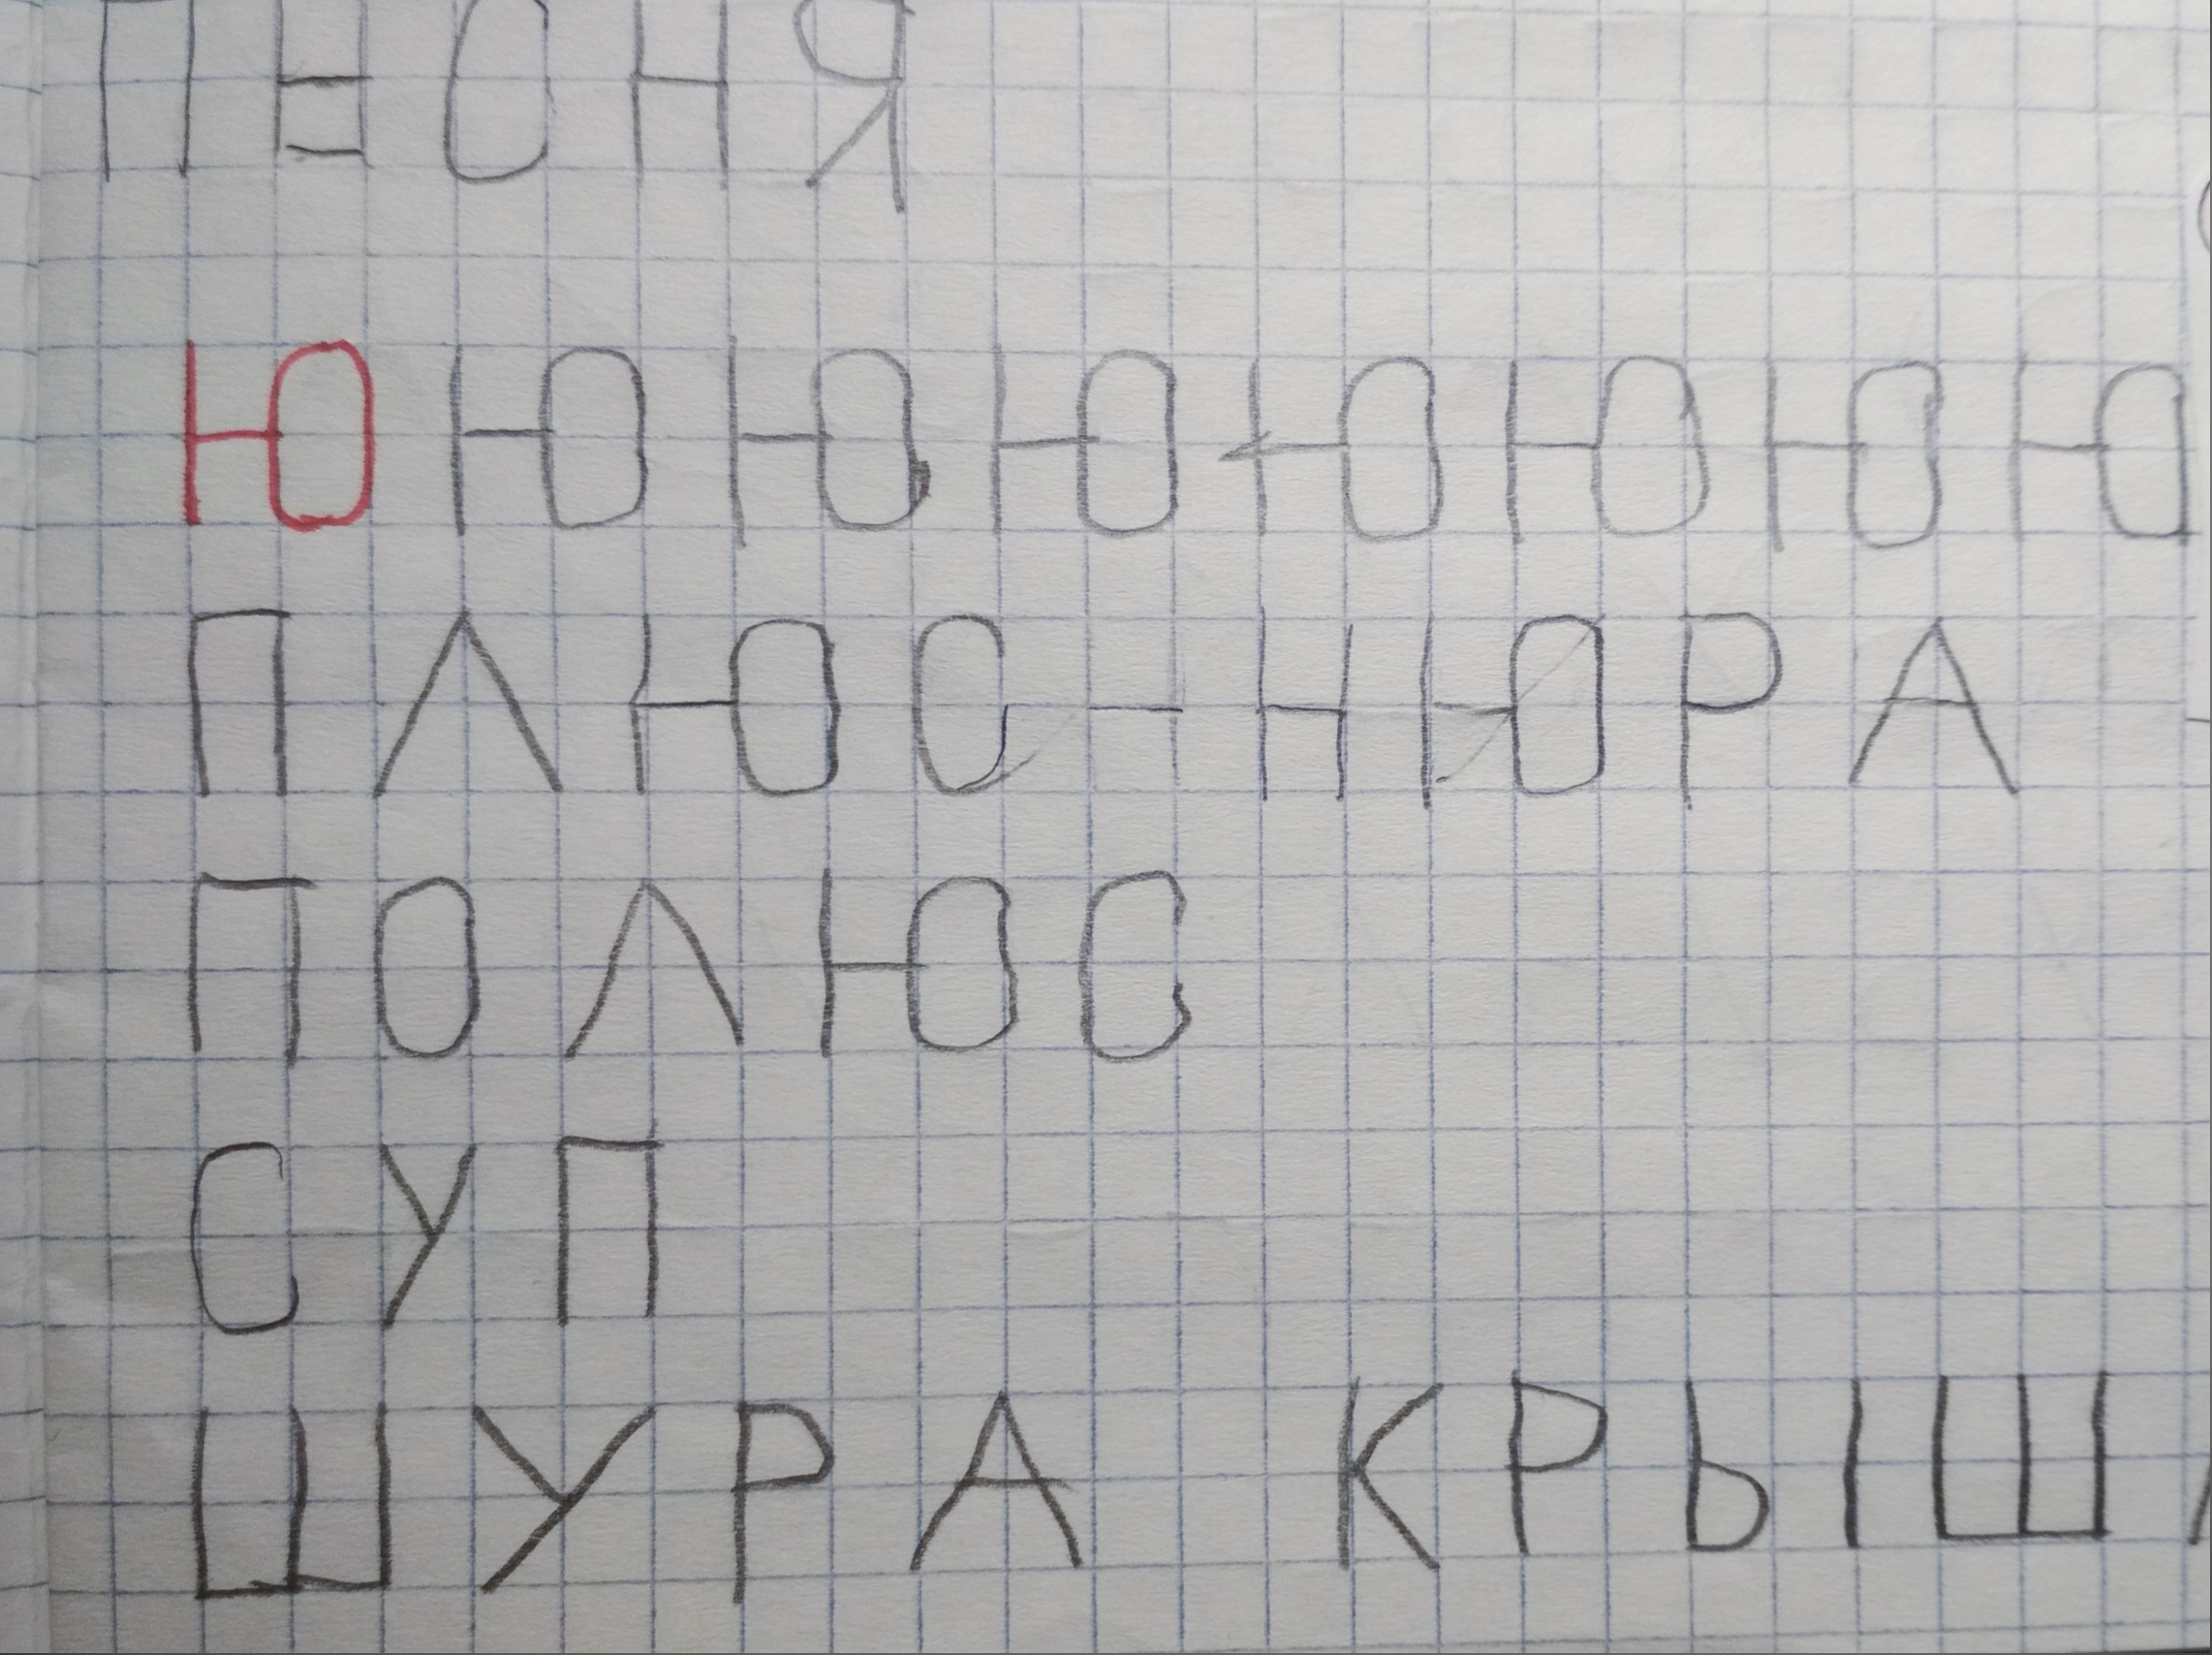 Ю Ю Ю Ю Ю Ю Ю Ю
ПЛЮС - НЮРА
ПОЛЮС
СУП
ШУРА КРЫШ